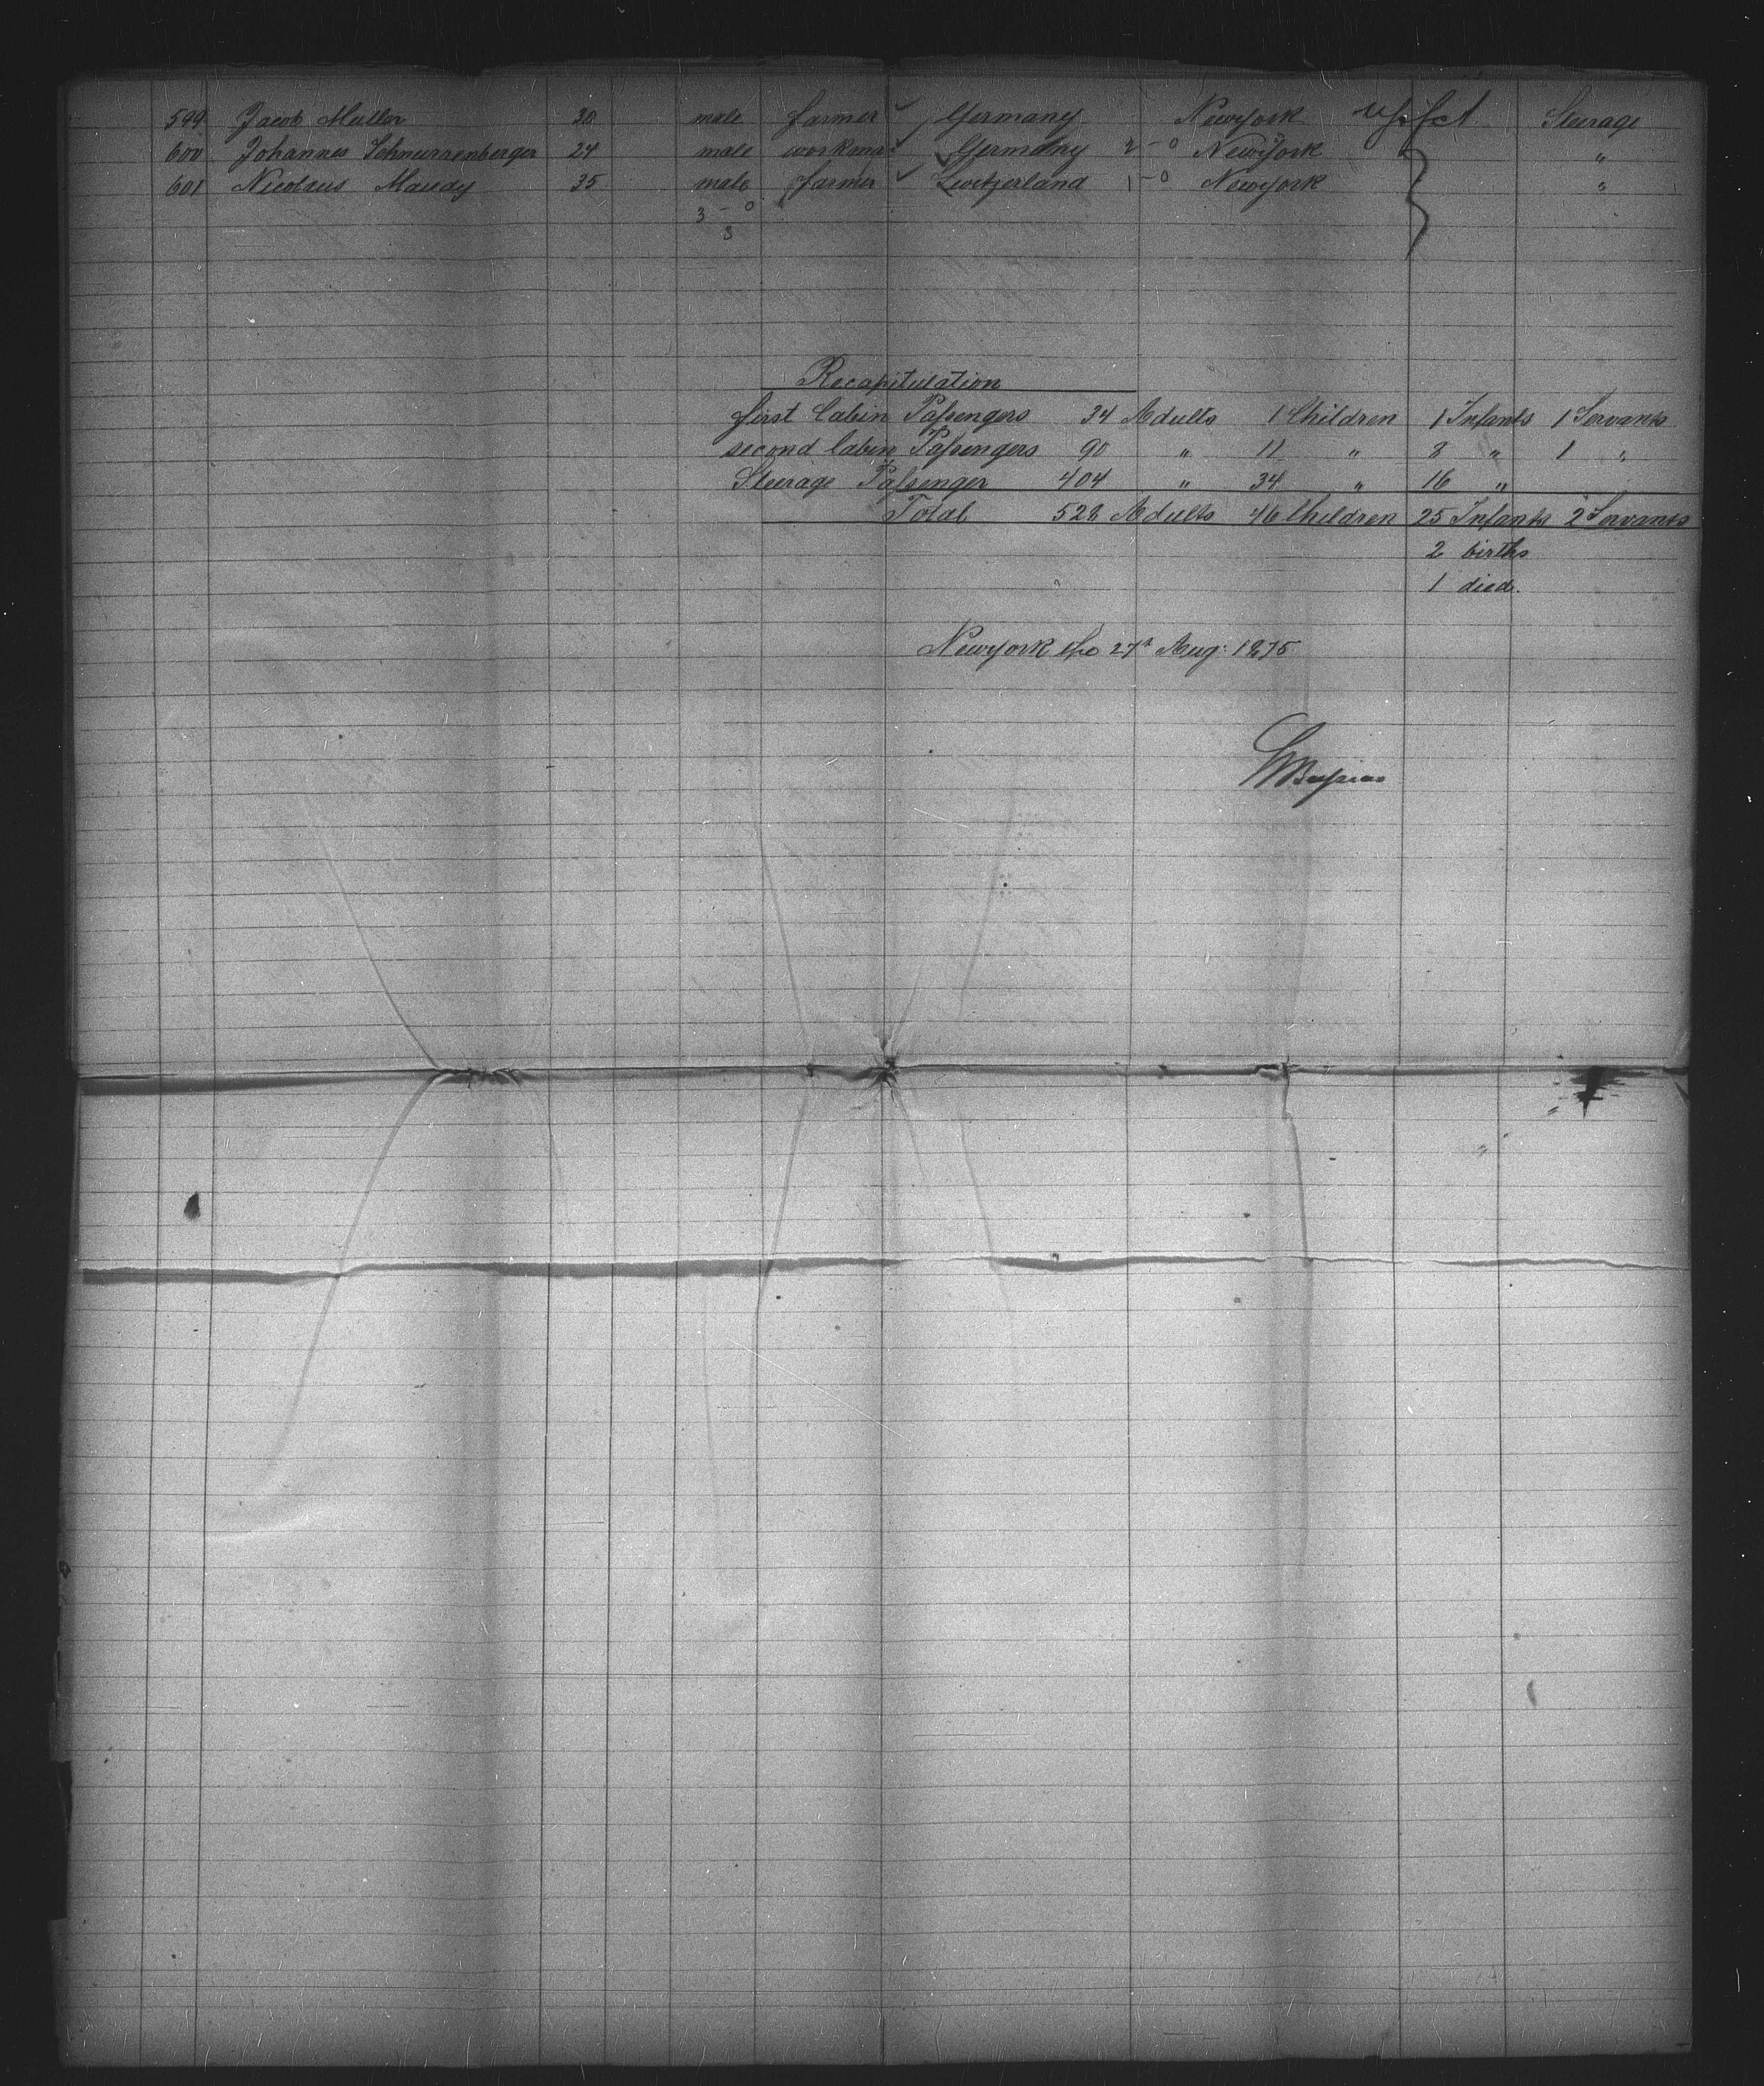 599 Jacob Muller 30 male farmer Germany Newyork Steerage
600 Johannes Schnurrenberger 24 male workman Germany 2 - 0 Newyork "
601 Nicolaus Maudy 35 male farmer Switzerland 1 - 0 Newyork "
3 - 0
3
Recapitulation
first Cabin Passengers 34 Adults 1 Children 1 Infants 1 Servants
second Cabin Passengers 90 " 11 " 8 " 1 "
Steerage Passenger 404 " 34 " 16 "
Total 528 Adults 46 Children 25 Infants 2 Servants
2 births
1 died.
Newyork the 27th Aug: 1875